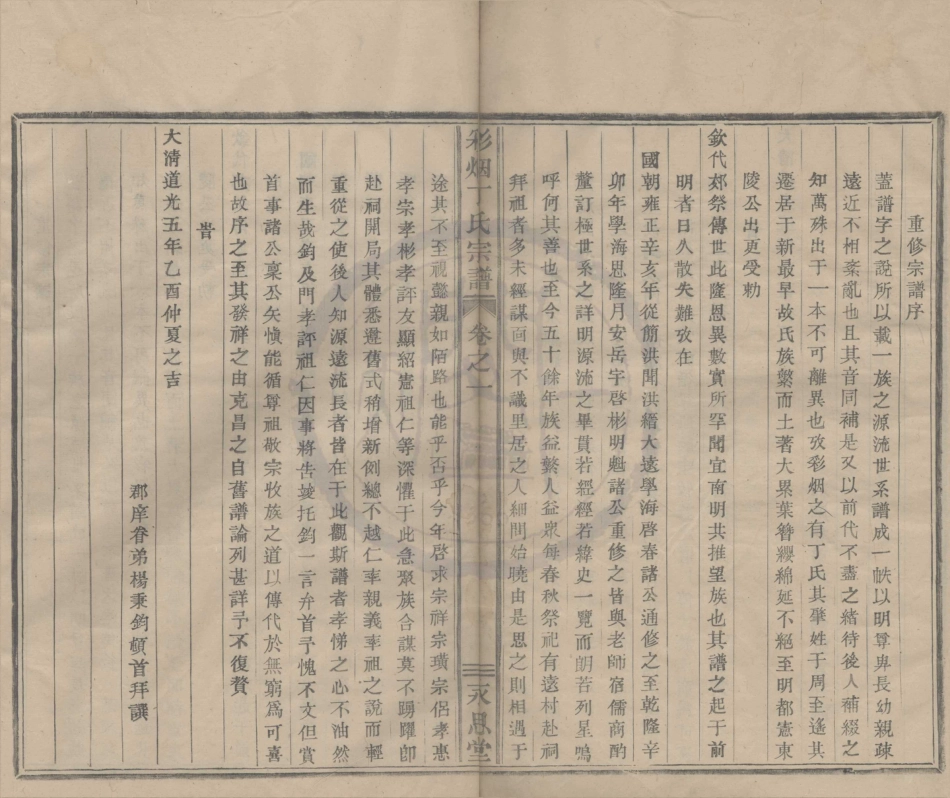 重修宗譜序
蓋譜字之說所以載一族之源流世系譜成一帙以明尊卑長幼親疎
遠近不相紊亂也且其音同補是又以前代不盡之緒待後人補綴之
知萬殊出于一本不可離異也攷彩烟之有丁氏其肇姓于周至遙其
遷居于新最早故氏族繫而土著大累葉簪纓綿延不絕至明都憲東
陵公出更受勅
欽代郊祭傳世此隆恩異數實所罕聞宜南明共推望族也其譜之起于前
明者日久散失難攷在
國朝雍正辛亥年從簡洪聞洪縉大遠學海啓春諸公通修之至乾隆辛
卯年學海恩隆月安岳字啓彬明魁諸公重修之皆與老師宿儒商酌
釐訂極世系之詳明源流之畢貫若經經若緯史一覽而朗若列星嗚
呼何其善也至今五十餘年族益繁人益衆每春秋祭祀有遠村赴祠
拜祖者多未經謀面與不識里居之人細問始曉由是思之則相遇于
彩烟丁氏宗譜 卷之一 永思堂
途其不至視懿親如陌路也能乎否乎今年啓求宗祥宗璜宗侶孝惠
孝宗孝彬孝評友顯紹憲祖仁等深懼于此急聚族合謀莫不踴躍卽
赴祠開局其體悉遵舊式稍增新例總不越仁率親義率祖之說而輕
重從之使後人知源遠流長者皆在于此觀斯譜者孝悌之心不油然
而生哉鈞及門孝評祖仁因事將告竣托鈞一言弁首予愧不文但賞
首事諸公稟公矢愼能循尊祖敬宗收族之道以傳代於無窮爲可喜
也故序之至其發祥之由克昌之自舊譜論列甚詳予不復贅
旹
大淸道光五年乙酉仲夏之吉
郡庠眷弟楊秉鈞頓首拜譔